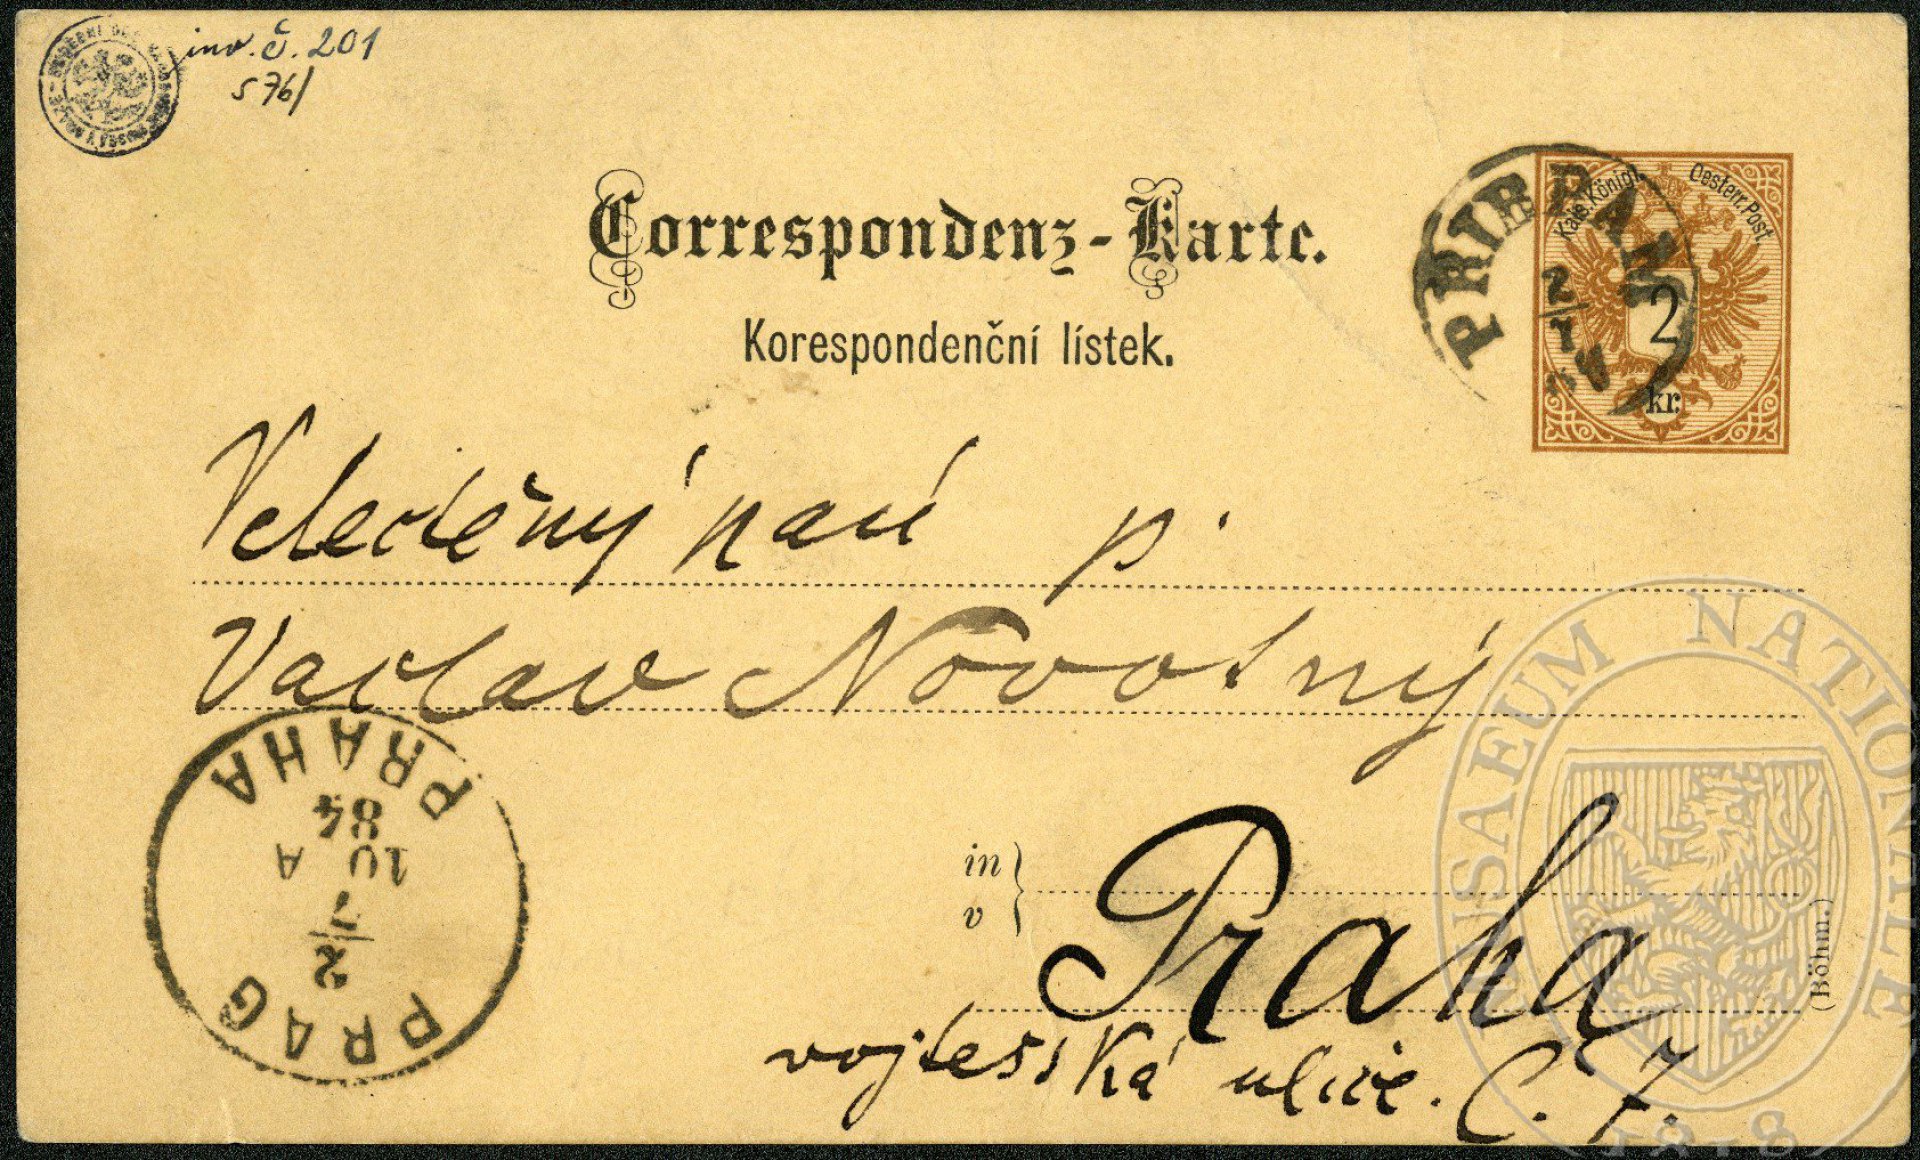 inv. č. 201
S 76/
Correspondenz-Karte.
Korespondenční lístek.
PRIBRAM
2/7
Kais. Königl. Oesterr. Post.
2
kr.
Velectěný paní p.
Vaclav Novotný
in
v
Praha
(Böhm.)
vojtěsská ulice. Č. 7.
PRAHA
84
10 A
2/7
PRAG
MUSAEUM NATIONALE
1818